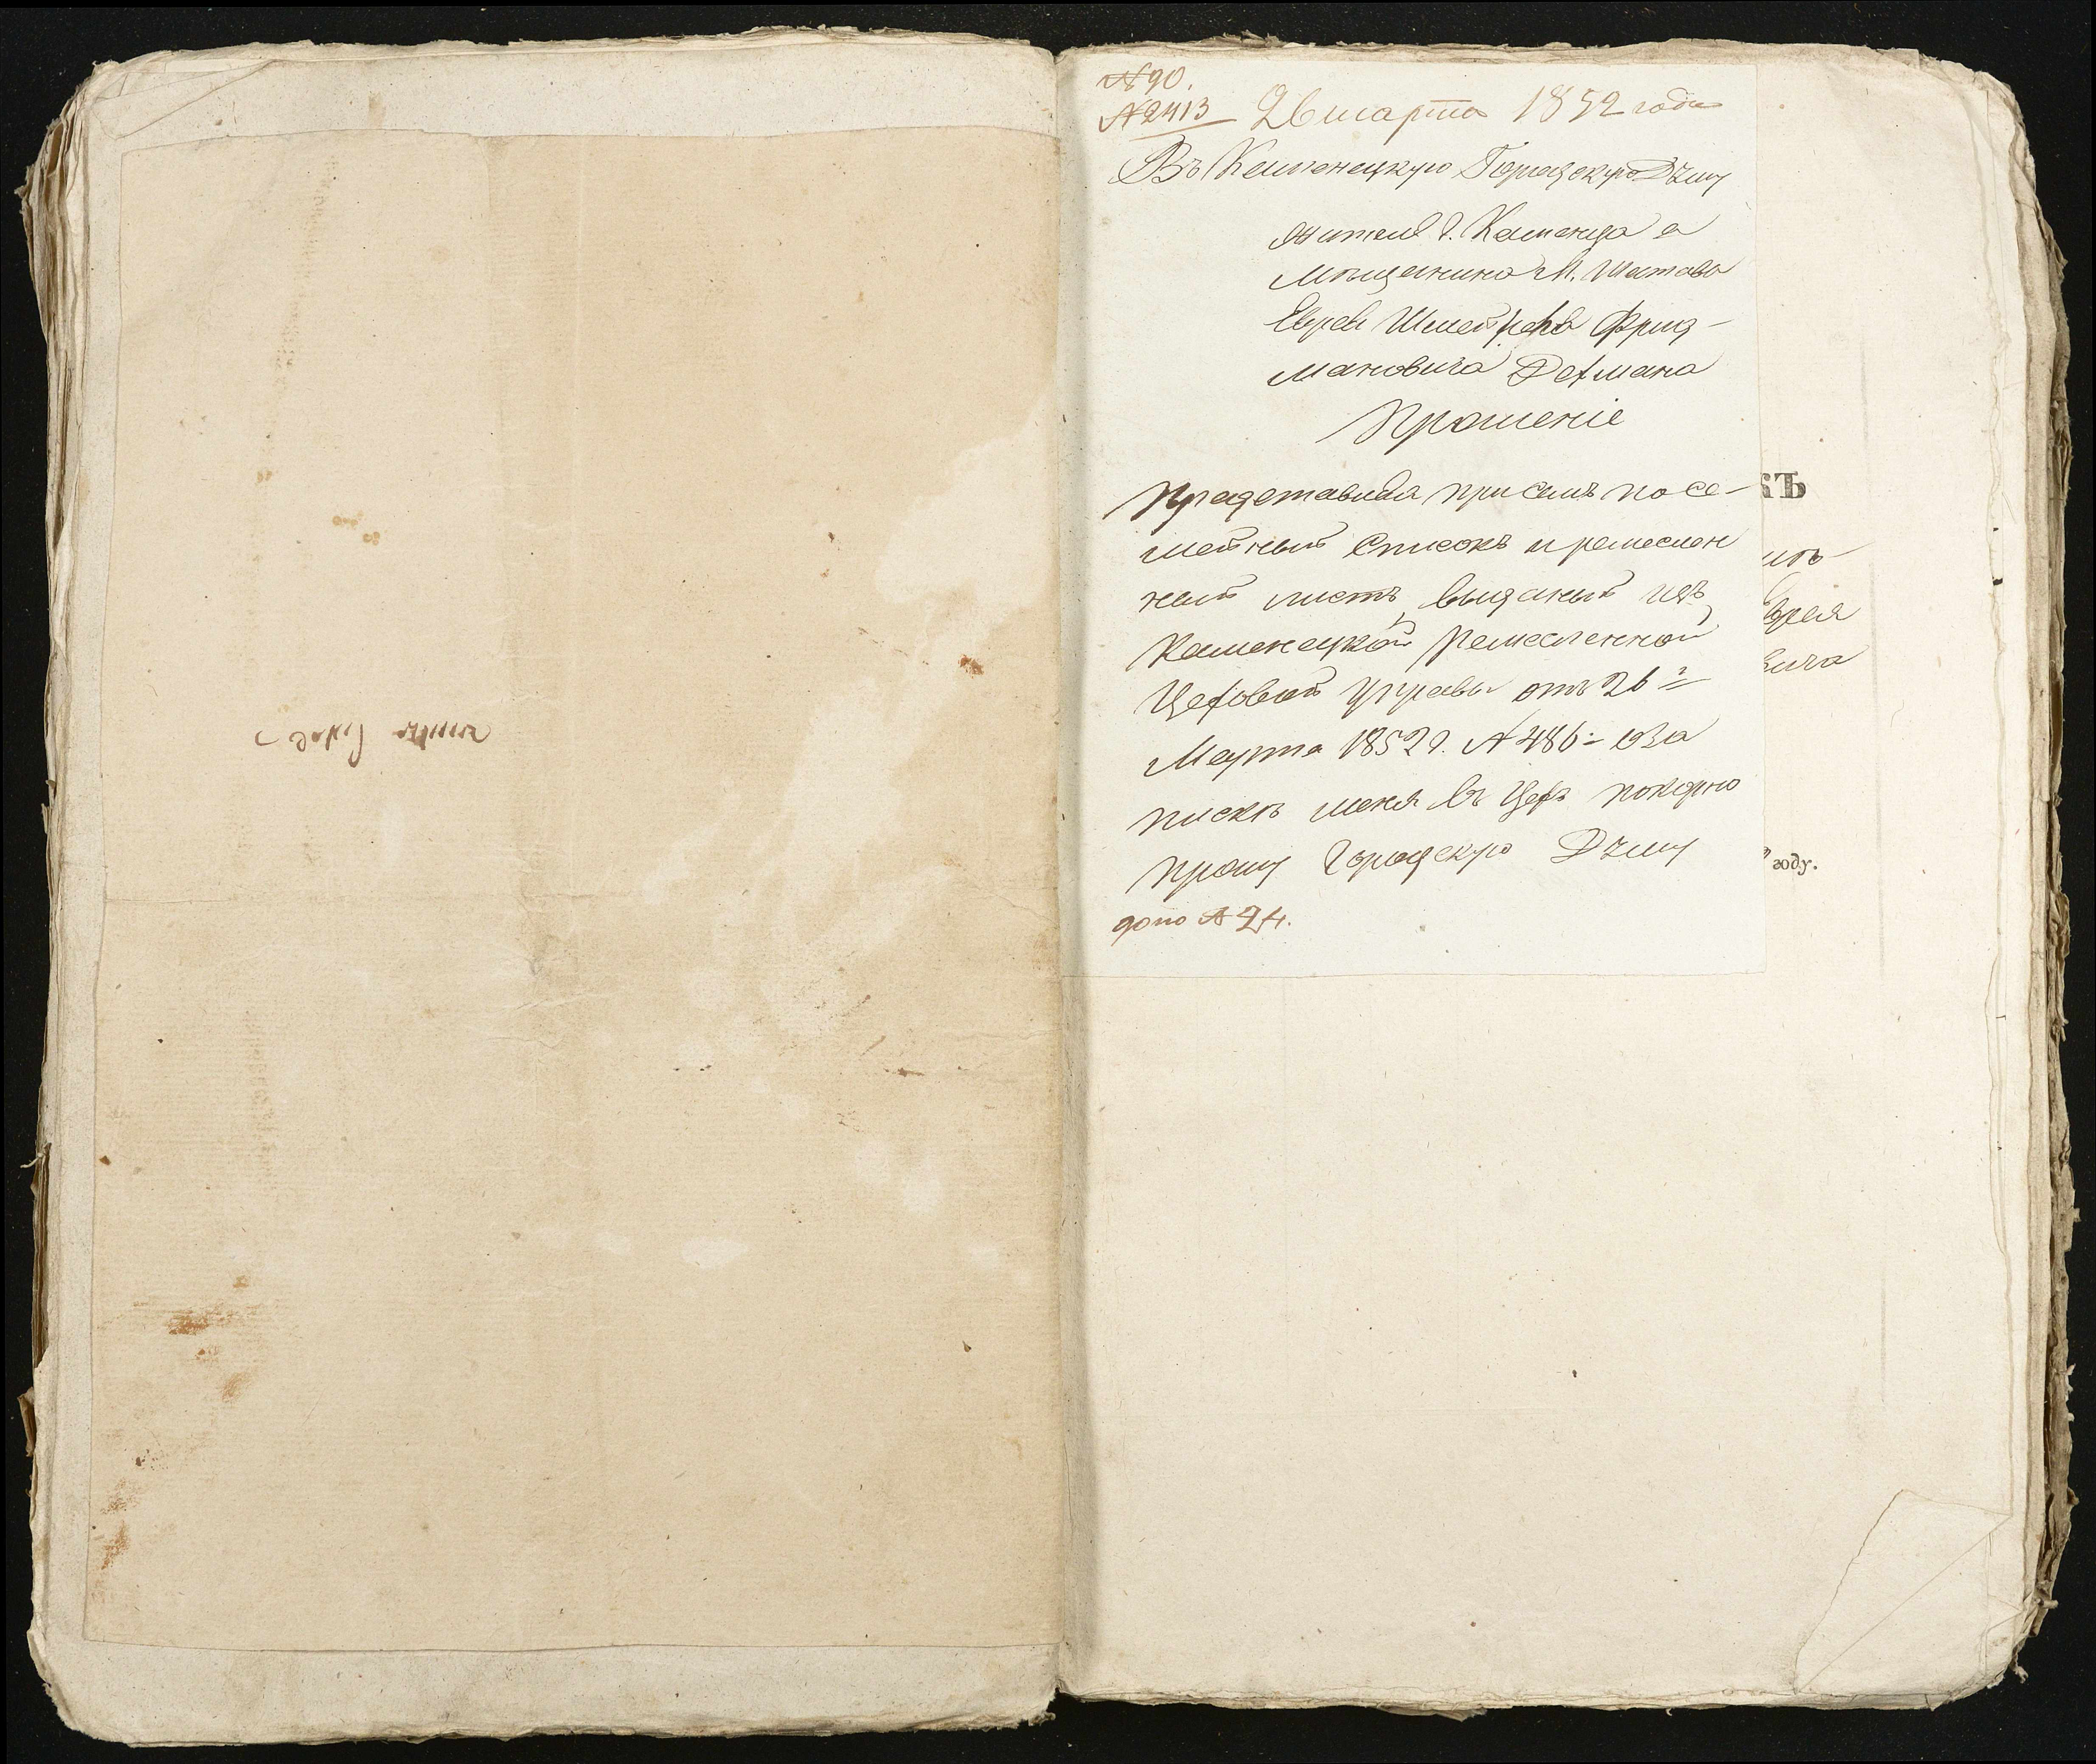 № 90.
№ 2413 26 марта 1852 года
Въ Каменецкую Городскую Думу
жителя г. Каменца а
мѣщанина м. Шатава
Еврея Фрид-
мановича
Прошеніе
Представляя при семъ посе-
мейный списокъ и ремеслен
ный листъ выданый изъ
Каменецкой Ремесленной
Цеховой Управы отъ 26 г
Марта 1852 г. № 486 = о за
пискѣ меня въ Цехъ покорно
прошу Городскую Думу
№ 24.
КЪ
Еврея
вича
году.